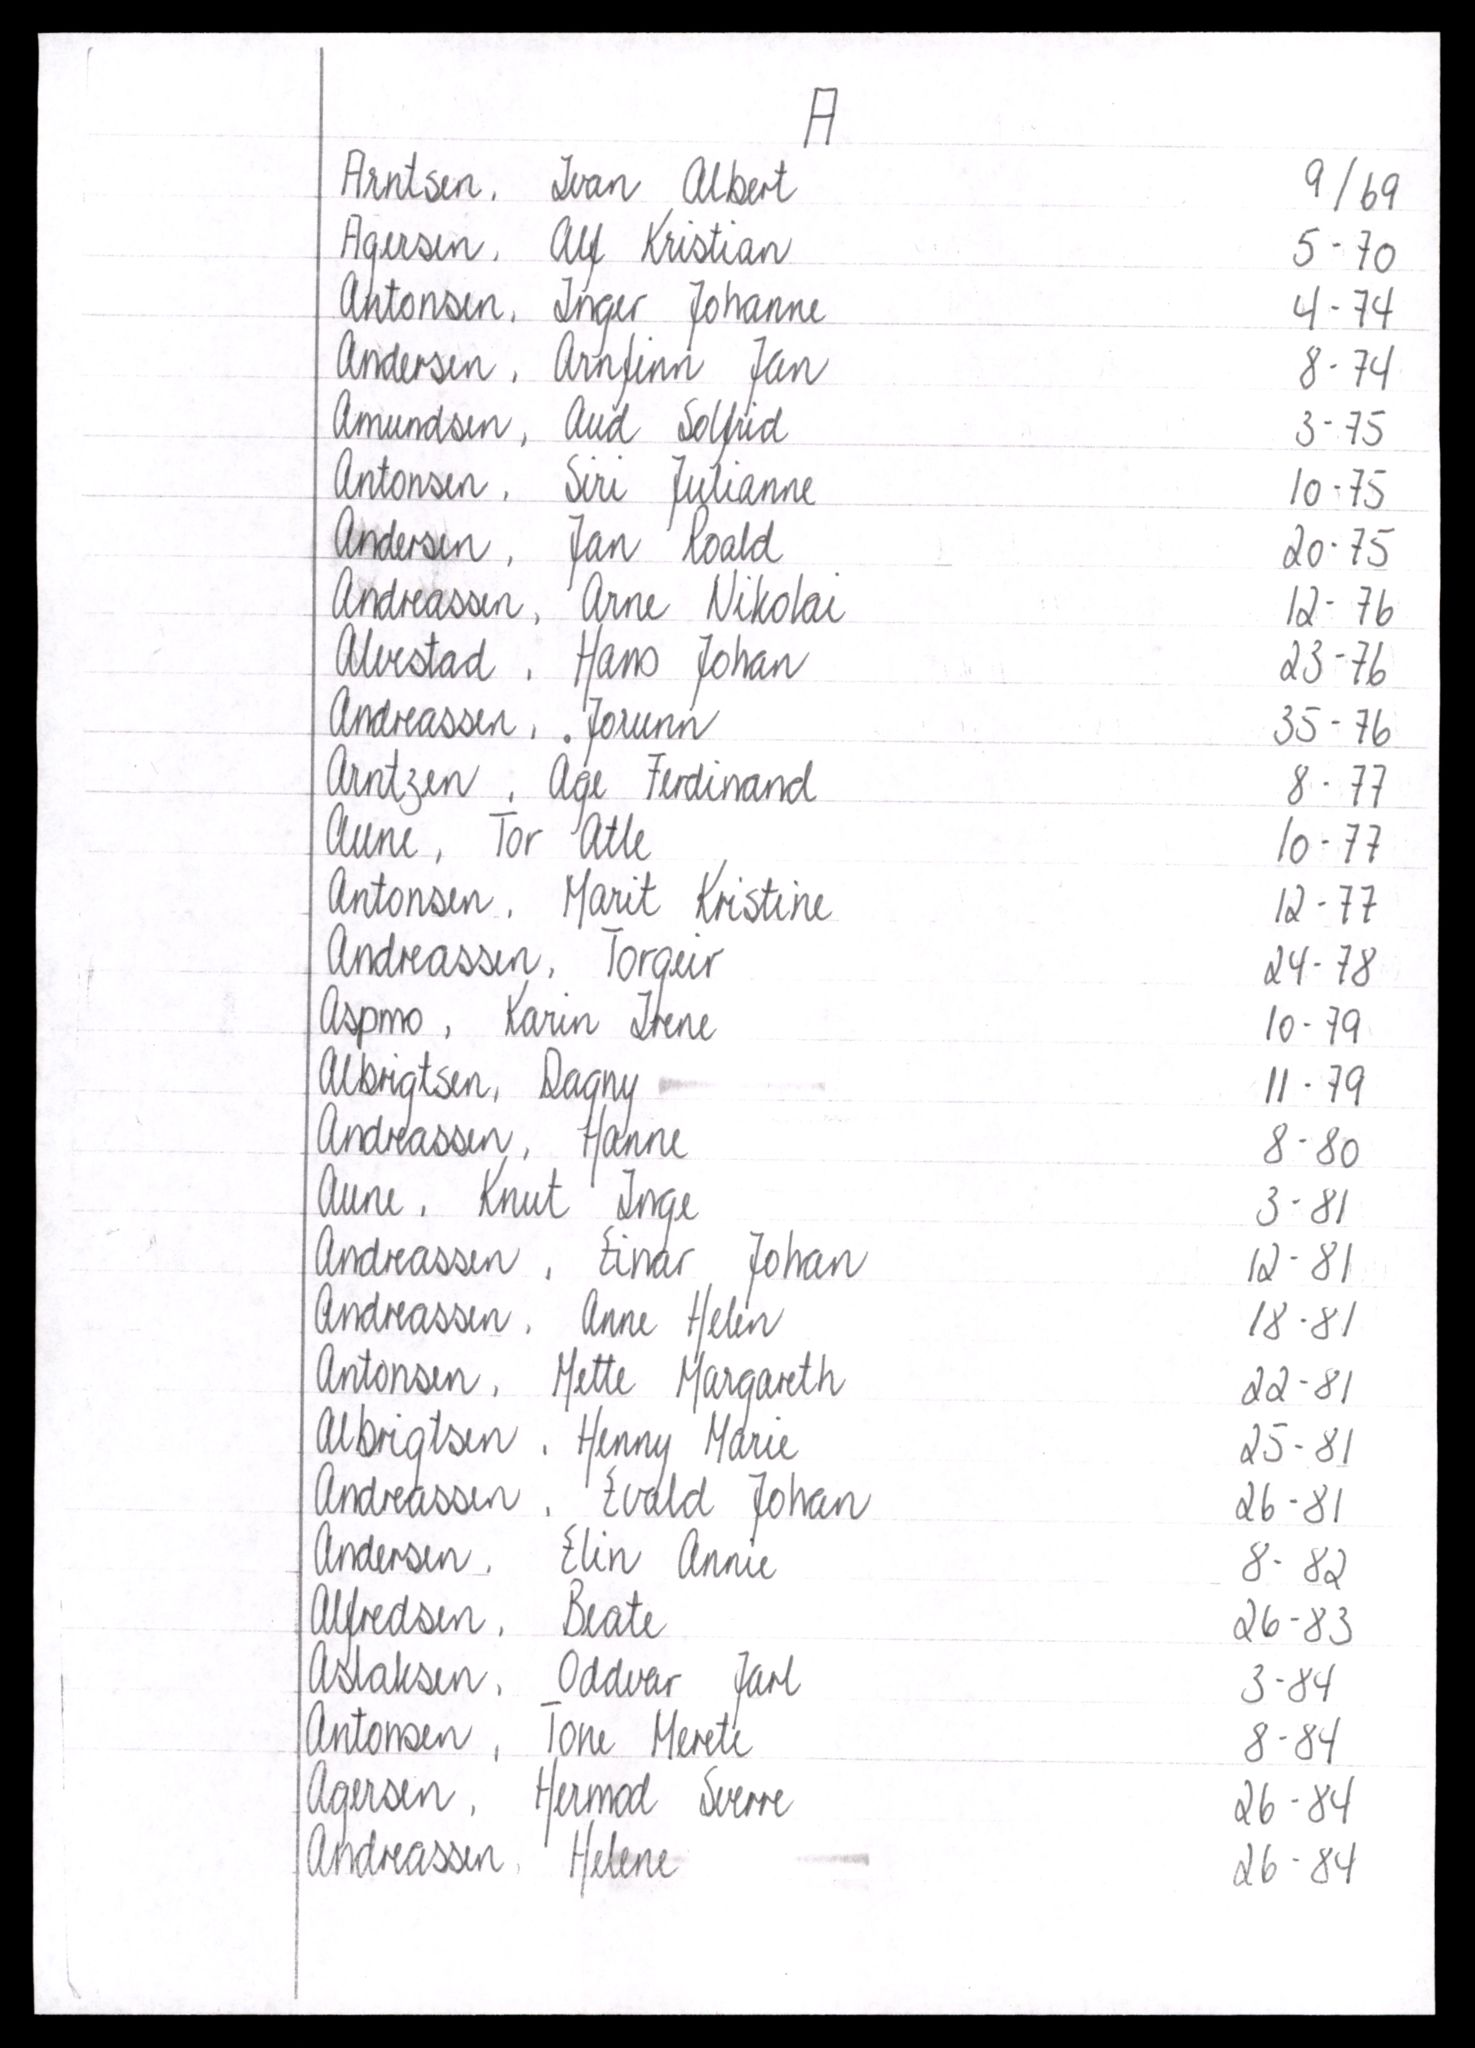 A
Arntsen, Ivan Albert 9/69
Agersen, Alf Kristian 5-70
Antonsen, Inger Johanne 4-74
Andersen, Arnfinn Jan 8-74
Amundsen, Aud Solfrid 3-75
Antonsen, Siri Julianne 10-75
Andersen, Jan Roald 20-75
Andreassen, Arne Nikolai 12-76
Alvestad, Hans Johan 23-76
Andreassen, Jorunn 35-76
Arntzen, Åge Ferdinand 8-77
Aune, Tor Atle 10-77
Antonsen, Marit Kristine 12-77
Andreassen, Torgeir 24-78
Aspmo, Karin Irene 10-79
Albrigtsen, Dagny 11-79
Andreassen, Hanne 8-80
Aune, Knut Inge 3-81
Andreassen, Einar Johan 12-81
Andreassen, Anne Helen 18-81
Antonsen, Mette Margareth 22-81
Albrigtsen, Henny Marie 25-81
Andreassen, Evald Johan 26-81
Andersen, Elin Annie 8-82
Alfredsen, Beate 26-83
Aslaksen, Oddvar Jarl 3-84
Antonsen, Tone Merete 8-84
Agersen, Hermod Sverre 26-84
Andreassen, Helene 26-84